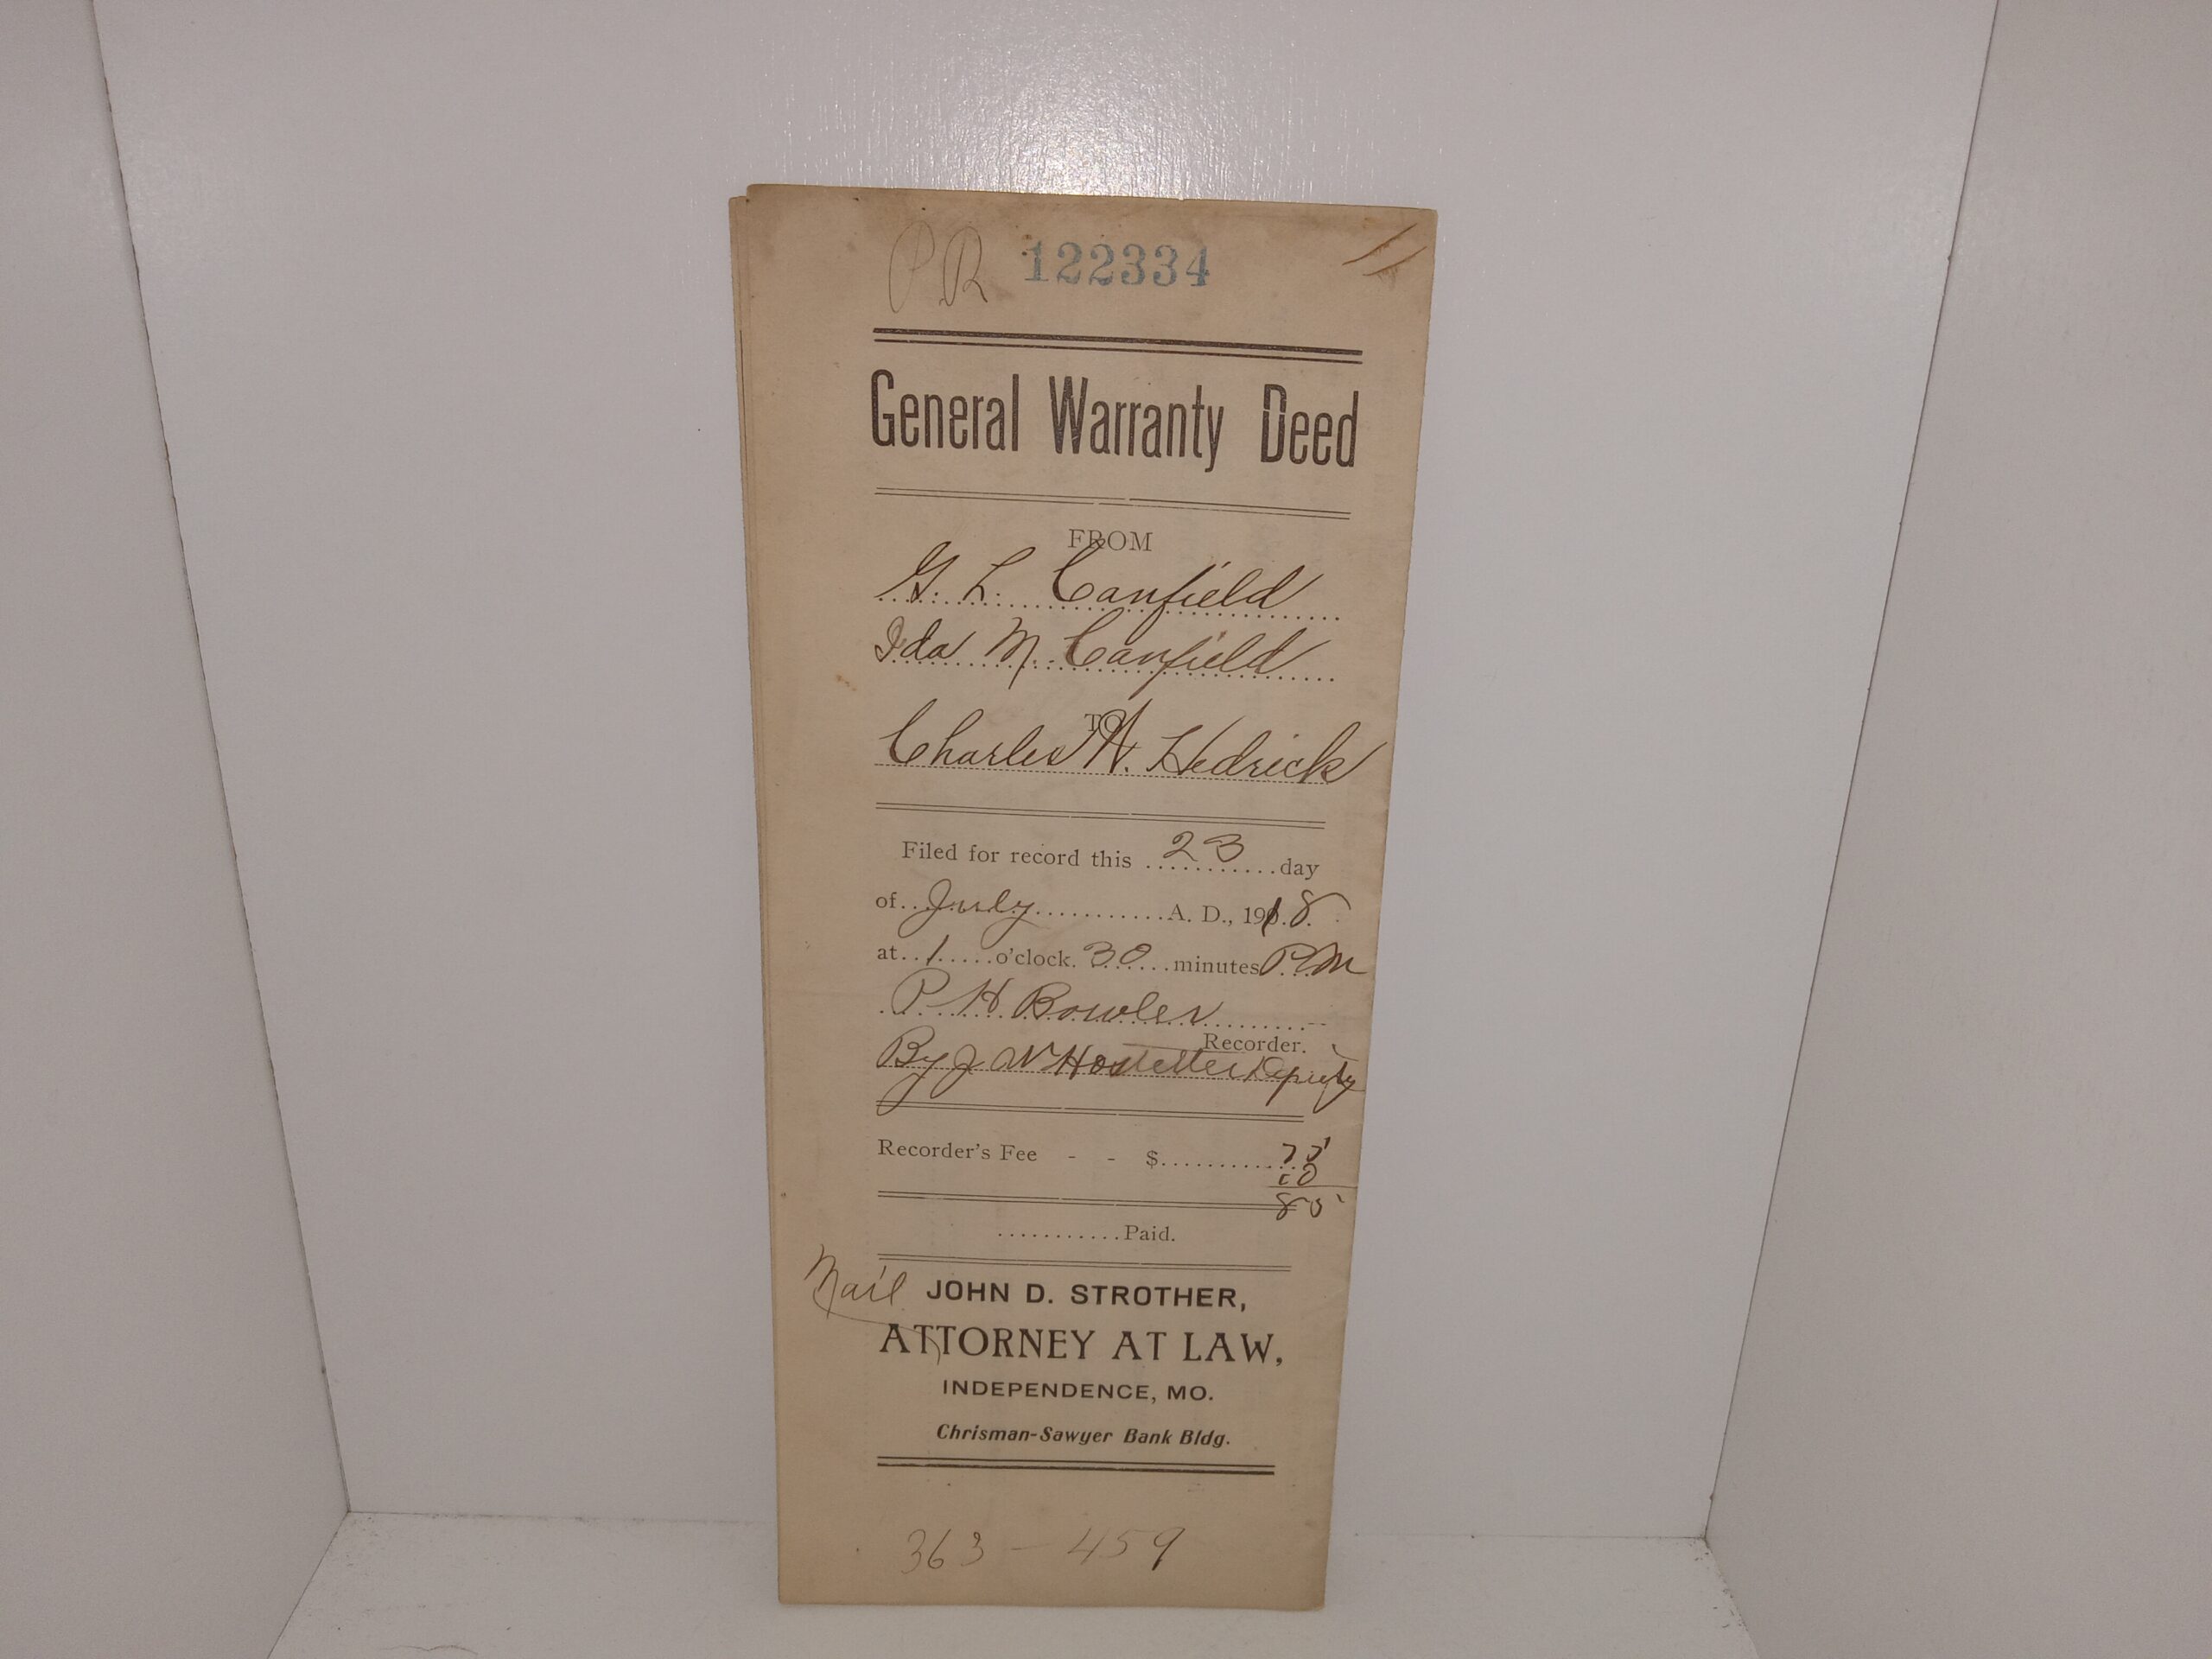 PR 122334
General Warranty Deed
FROM
G. L. Canfield
Ida M. Canfield
TO
Charles W. Hedrick
Filed for record this 23 day
of July A. D., 1918.
at 1 o'clock 30 minutes P.M
P H Bowler
Recorder.
By J W Hostetter Deputy
Recorder's Fee - - $ 75
10
85
Paid.
Mail JOHN D. STROTHER,
ATTORNEY AT LAW,
INDEPENDENCE, MO.
Chrisman-Sawyer Bank Bldg.
363 - 459